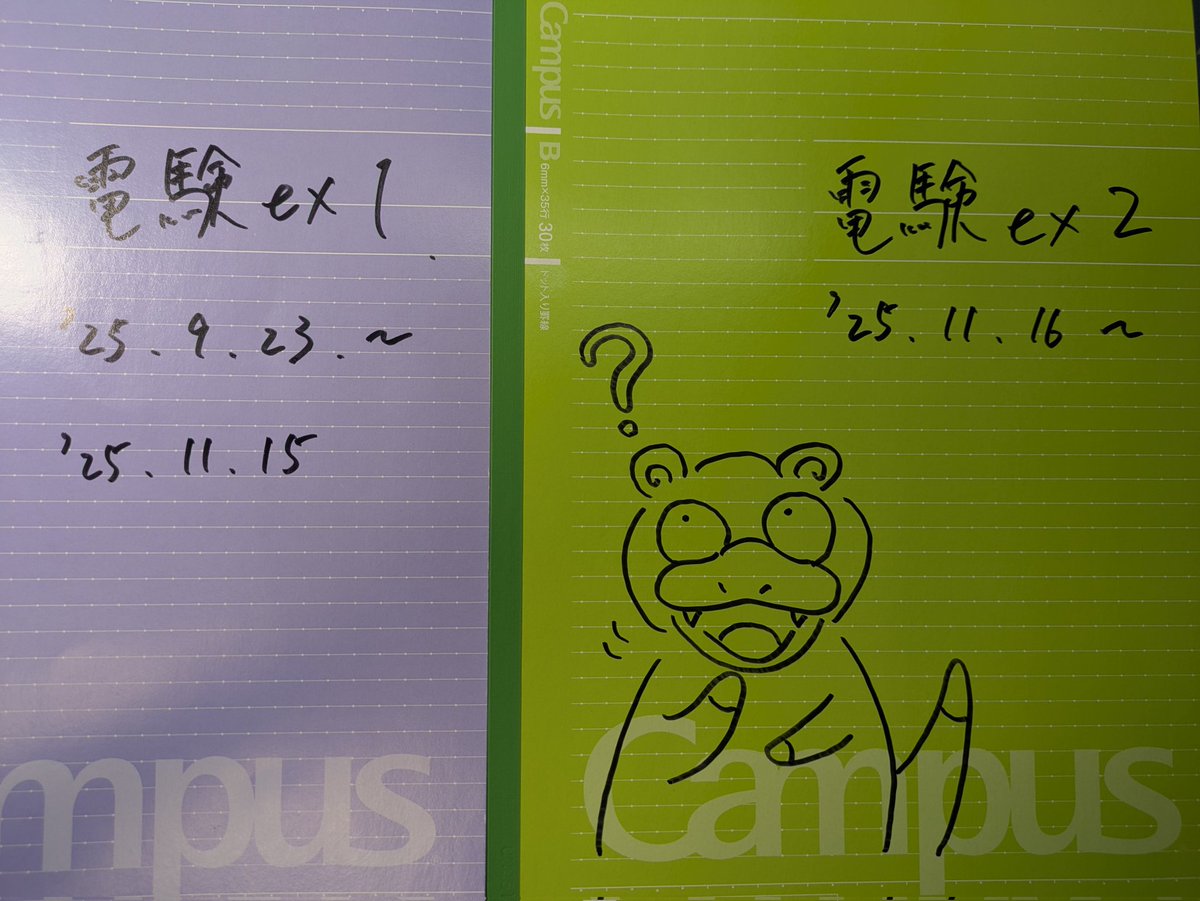 電験 ex 1
'25. 9. 23. ~
'25. 11. 15
mpus
Campus
B
6mm×35行 30枚
ドット入り罫線
電験 ex 2
'25. 11. 16 ~
?
Campus